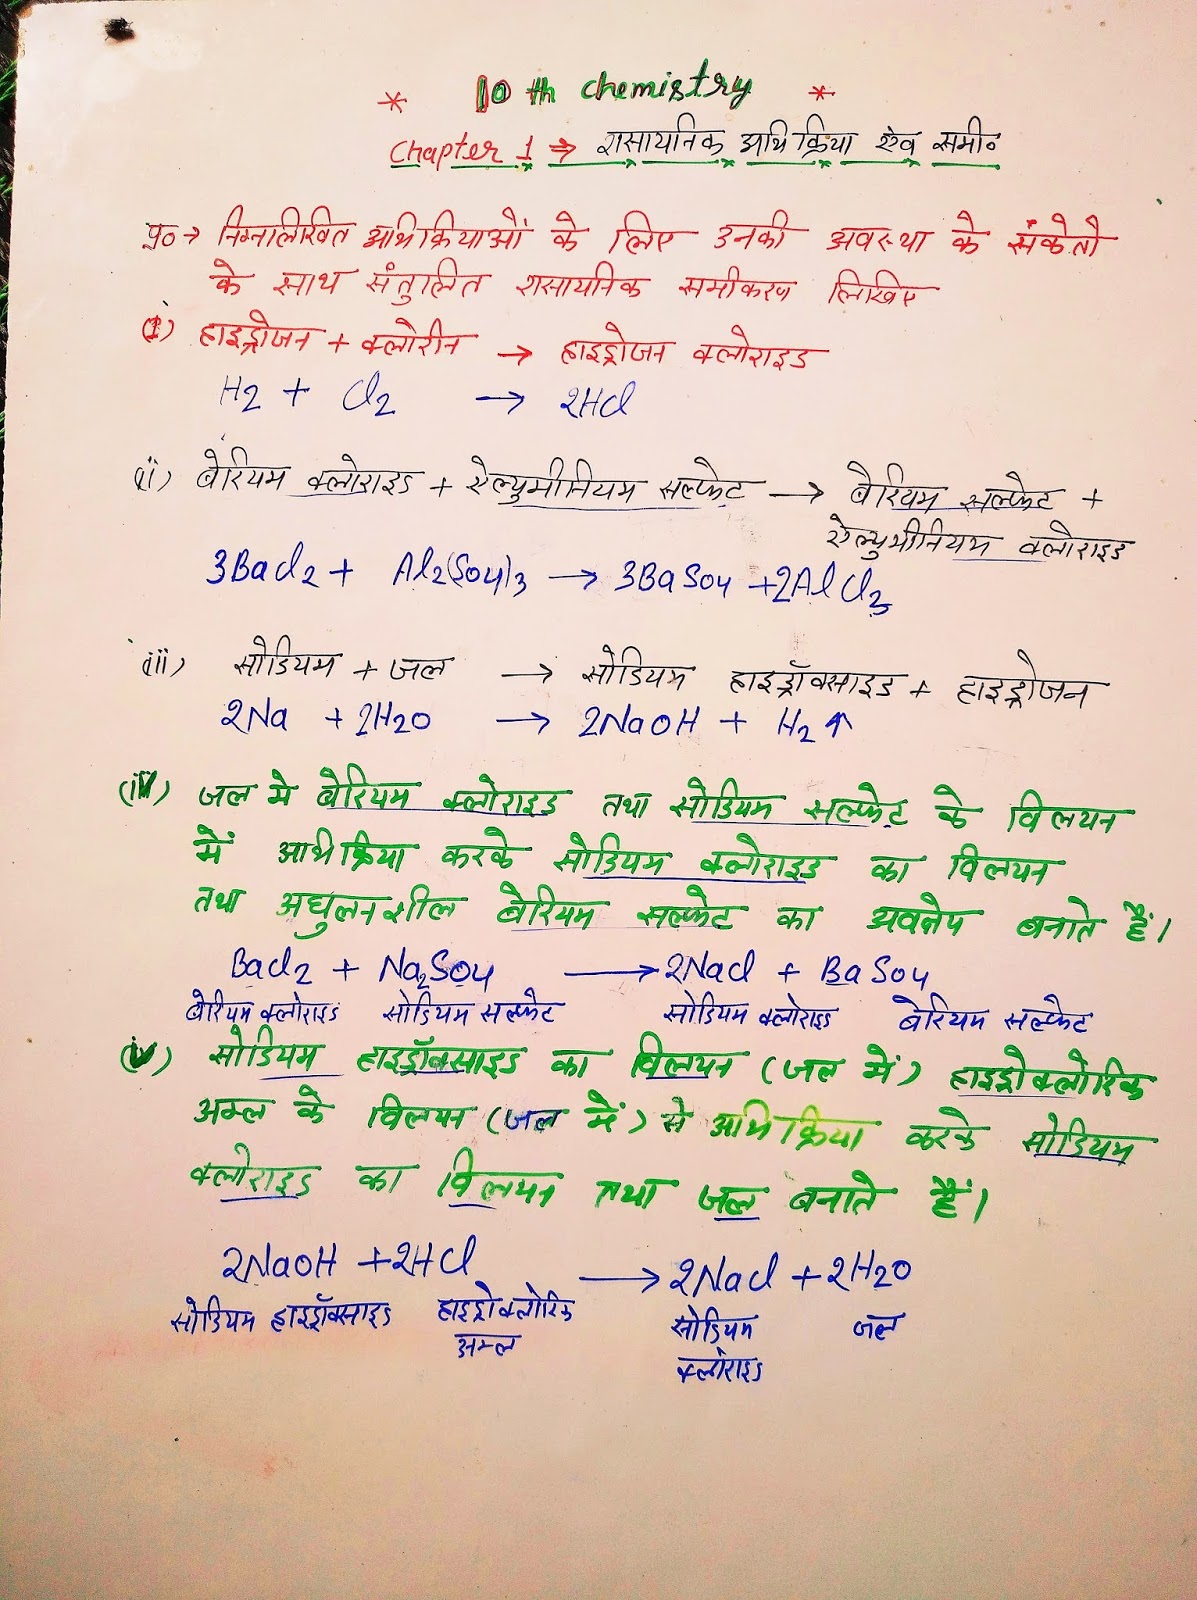 * 10 th chemistry *
Chapter 1 ⇒ रासायनिक अभिक्रिया एवं समी०
प्र० → निम्नलिखित अभिक्रियाओं के लिए उनकी अवस्था के संकेतो
के साथ संतुलित रासायनिक समीकरण लिखिए
(i) हाइड्रोजन + क्लोरीन → हाइड्रोजन क्लोराइड
H2 + Cl2 → 2HCl
(ii) बेरियम क्लोराइड + ऐल्युमीनियम सल्फेट → बेरियम सल्फेट +
ऐल्युमीनियम क्लोराइड
3BaCl2 + Al2(SO4)3 → 3BaSO4 + 2AlCl3
(iii) सोडियम + जल → सोडियम हाइड्रॉक्साइड + हाइड्रोजन
2Na + 2H2O → 2NaOH + H2↑
(iv) जल मे बेरियम क्लोराइड तथा सोडियम सल्फेट के विलयन
में अभिक्रिया करके सोडियम क्लोराइड का विलयन
तथा अघुलनशील बेरियम सल्फेट का अवक्षेप बनाते हैं।
BaCl2 + Na2SO4 → 2NaCl + BaSO4
बेरियम क्लोराइड सोडियम सल्फेट सोडियम क्लोराइड बेरियम सल्फेट
(iv) सोडियम हाइड्रॉक्साइड का विलयन (जल में) हाइड्रोक्लोरिक
अम्ल के विलयन (जल में) से अभिक्रिया करके सोडियम
क्लोराइड का विलयन तथा जल बनाते हैं।
2NaOH + 2HCl → 2NaCl + 2H2O
सोडियम हाइड्रॉक्साइड हाइड्रोक्लोरिक सोडियम जल
अम्ल क्लोराइड